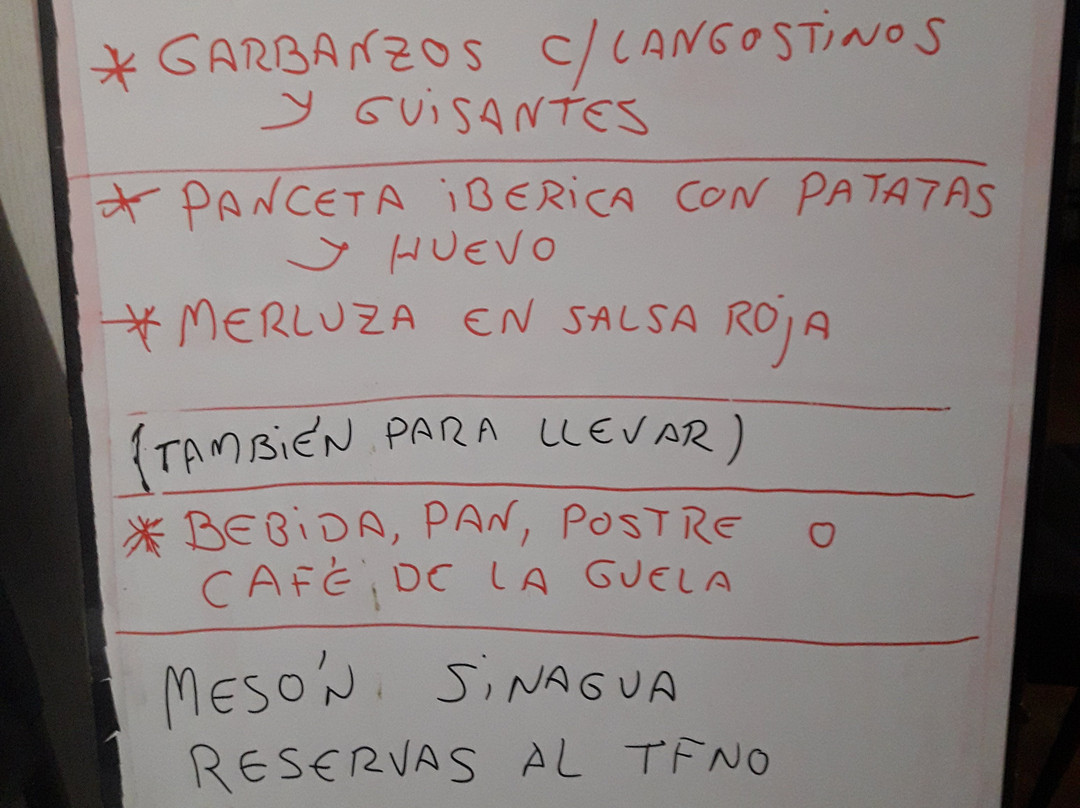 * GARBANZOS C/LANGOSTINOS
Y GUISANTES
* PANCETA IBERICA CON PATATAS
Y HUEVO
* MERLUZA EN SALSA ROJA
(TAMBIÉN PARA LLEVAR)
* BEBIDA, PAN, POSTRE O
CAFÉ DE LA GUELA
MESÓN SINAGUA
RESERVAS AL TFNO